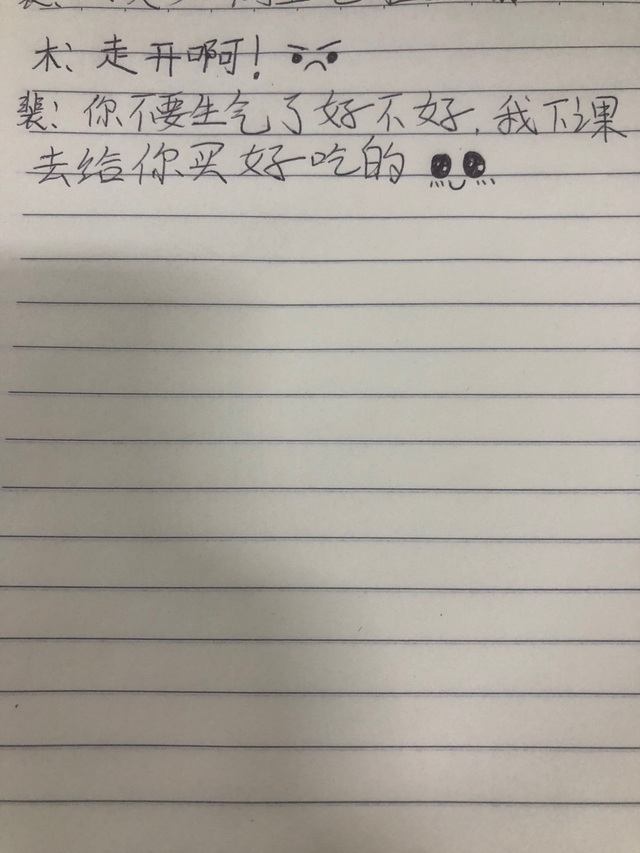 木：走开啊！
裴：你不要生气了好不好，我下课
去给你买好吃的